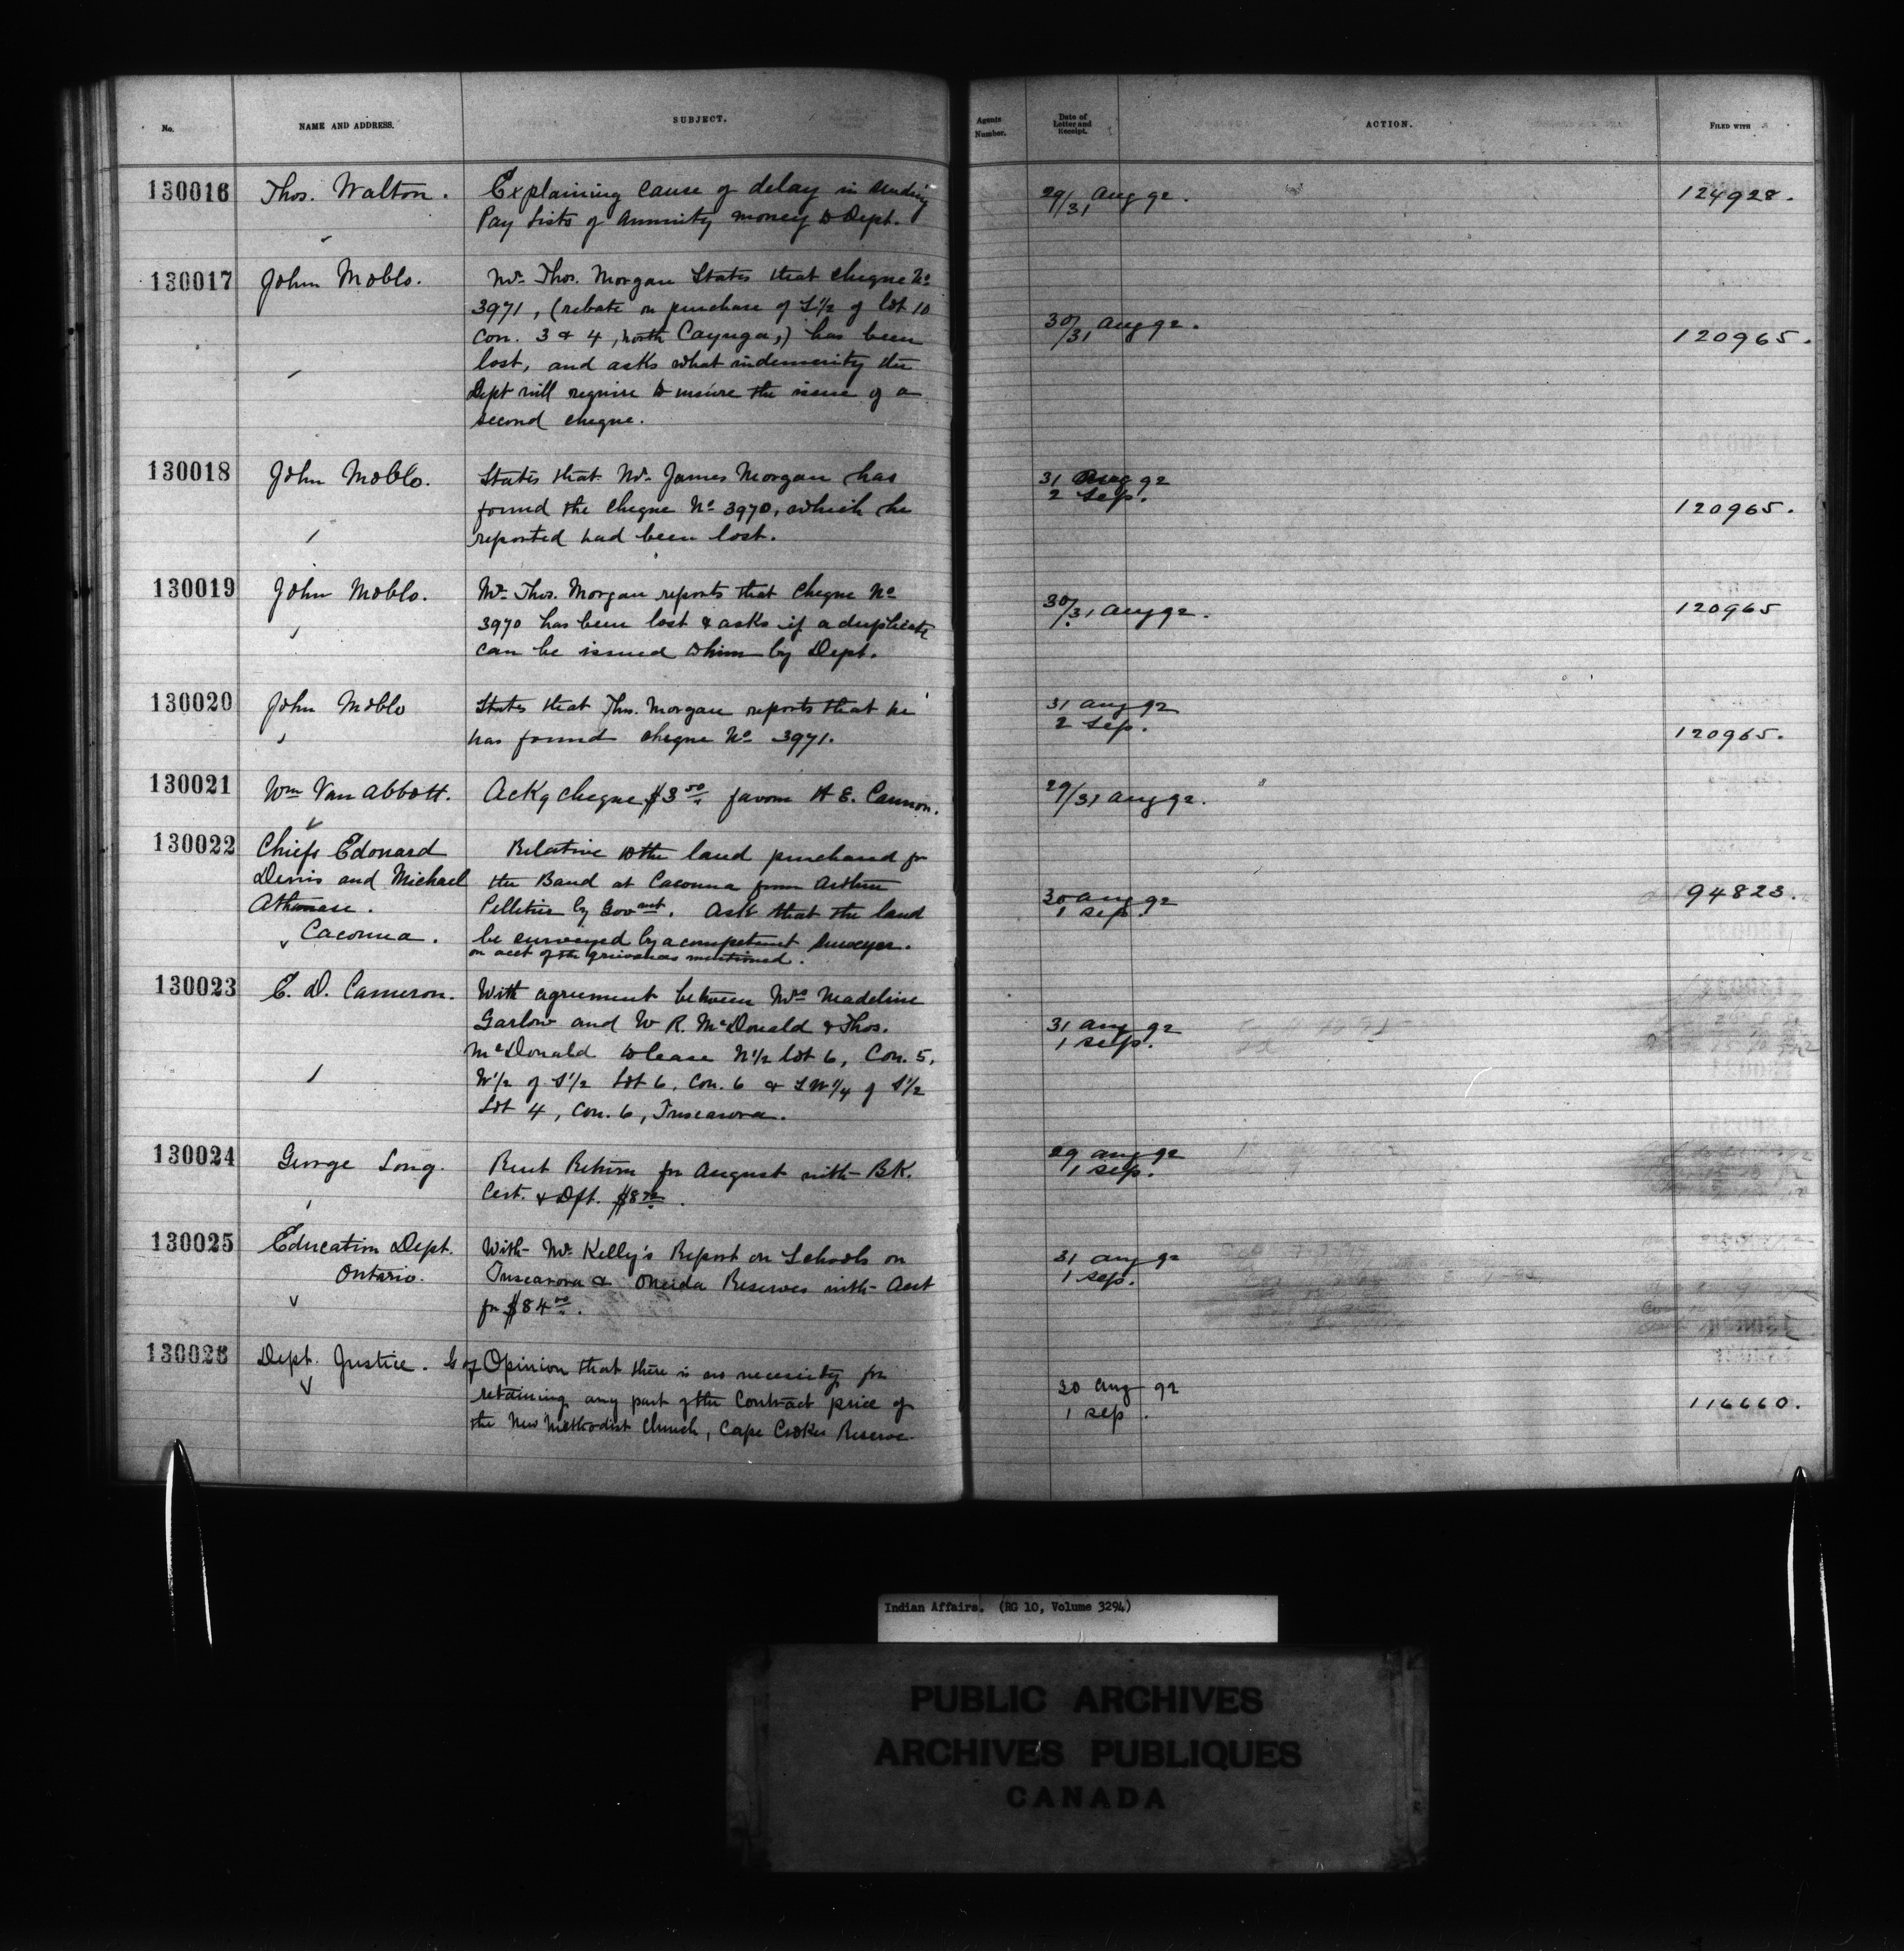 No.
NAME AND ADDRESS.
SUBJECT.
Agents Number.
Date of Letter and Receipt.
ACTION.
FILED WITH
130016 Thos. Walton. Explaining cause of delay in sending 29/31 Aug 92. 124928.
Pay Lists of Annuity money to Dept.
130017 John Moblo. Mr. Thos. Morgan States that cheque No
3971, (rebate on purchase of S½ of lot 10
Con. 3 & 4, North Cayuga,) has been 30/31 Aug 92. 120965.
lost, and asks what indemnity the
Dept will require to insure the issue of a
second cheque.
130018 John Moblo. States that Mr. James Morgan has 31 Aug 92
found the cheque No 3970, which he 2 Sep. 120965.
reported had been lost.
130019 John Moblo. Mr. Thos. Morgan reports that cheque No 30/31 Aug 92. 120965
3970 has been lost & asks if a duplicate
can be issued to him by Dept.
130020 John Moblo States that Thos. Morgan reports that he 31 Aug 92
has found cheque No 3971. 2 Sep. 120965.
130021 Wm Van Abbott. Ackg cheque $3 50/" favour A E. Cannon. 29/31 Aug 92.
130022 Chiefs Edouard Relative to the land purchased for
Denis and Michael the Band at Cacouna from Arthur 30 Aug 92 94823.
Athanase. Pelletier by Govmt. Ask that the land 1 Sep.
Cacouna. be surveyed by a competent surveyor.
on acct of the grievances mentioned.
130023 E. D. Cameron. With agreement between Mrs Madeline
Garlow and W R. McDonald & Thos. 31 Aug 92
McDonald to lease N½ lot 6, Con. 5, 1 Sep.
W½ of S½ Lot 6, Con. 6 & S W¼ of S½
Lot 4, Con. 6, Tuscarora.
130024 George Long. Rent Return for August with BK. 29 Aug 92
Cert. & Dft. 1 Sep.
130025 Education Dept. With Mr. Kelly's Report on Schools on 31 Aug 92
Ontario. Tuscarora & Oneida Reserves with Acct 1 Sep.
for $84 00/".
130026 Dept. Justice. Opinion that there is no necessity for
retaining any part of the Contract price of 30 Aug 92
the New Methodist Church, Cape Croker Reserve 1 Sep. 116660.
Indian Affairs. (RG 10, Volume 3294)
PUBLIC ARCHIVES
ARCHIVES PUBLIQUES
CANADA